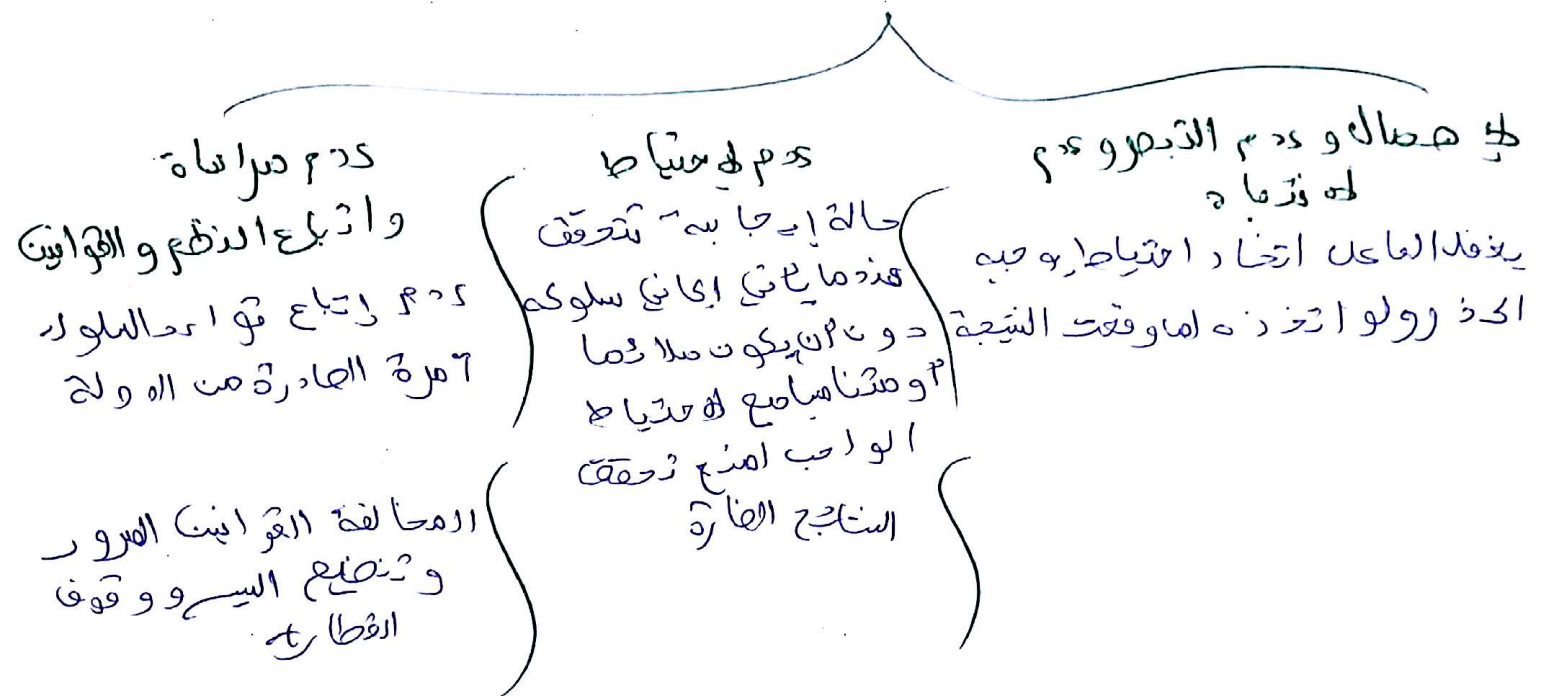 الإهمال و عدم التبصر و عدم
الانتباه
يغفل الفاعل اتخاد احتياط يوجبه
الحذر ولو اتخذه لما وقعت النتيجة
عدم الاحتياط
حالة إيجابية تتحقق
عندما يأتي الجاني سلوكه
دون أن يكون ملائما
أو متناسبا مع الاحتياط
الواجب لمنع تحقق
النتائج الضارة
عدم مراعاة
واتباع النظم و القوانين
عدم إتباع قواعد السلوك
آمرة الصادرة من الدولة
المخالفة القوانين المرور
وتنظيم السير و وقوف
القطارت